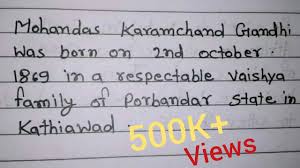 Mohandas Karamchand Gandhi
was born on 2nd october.
1869 in a respectable Vaishya
family of Porbandar state in
Kathiawad.
500K+
Views